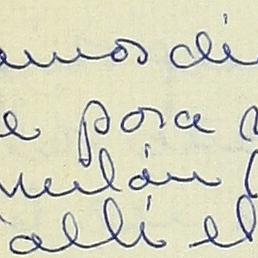 amos di
e posa
mulán
alli el